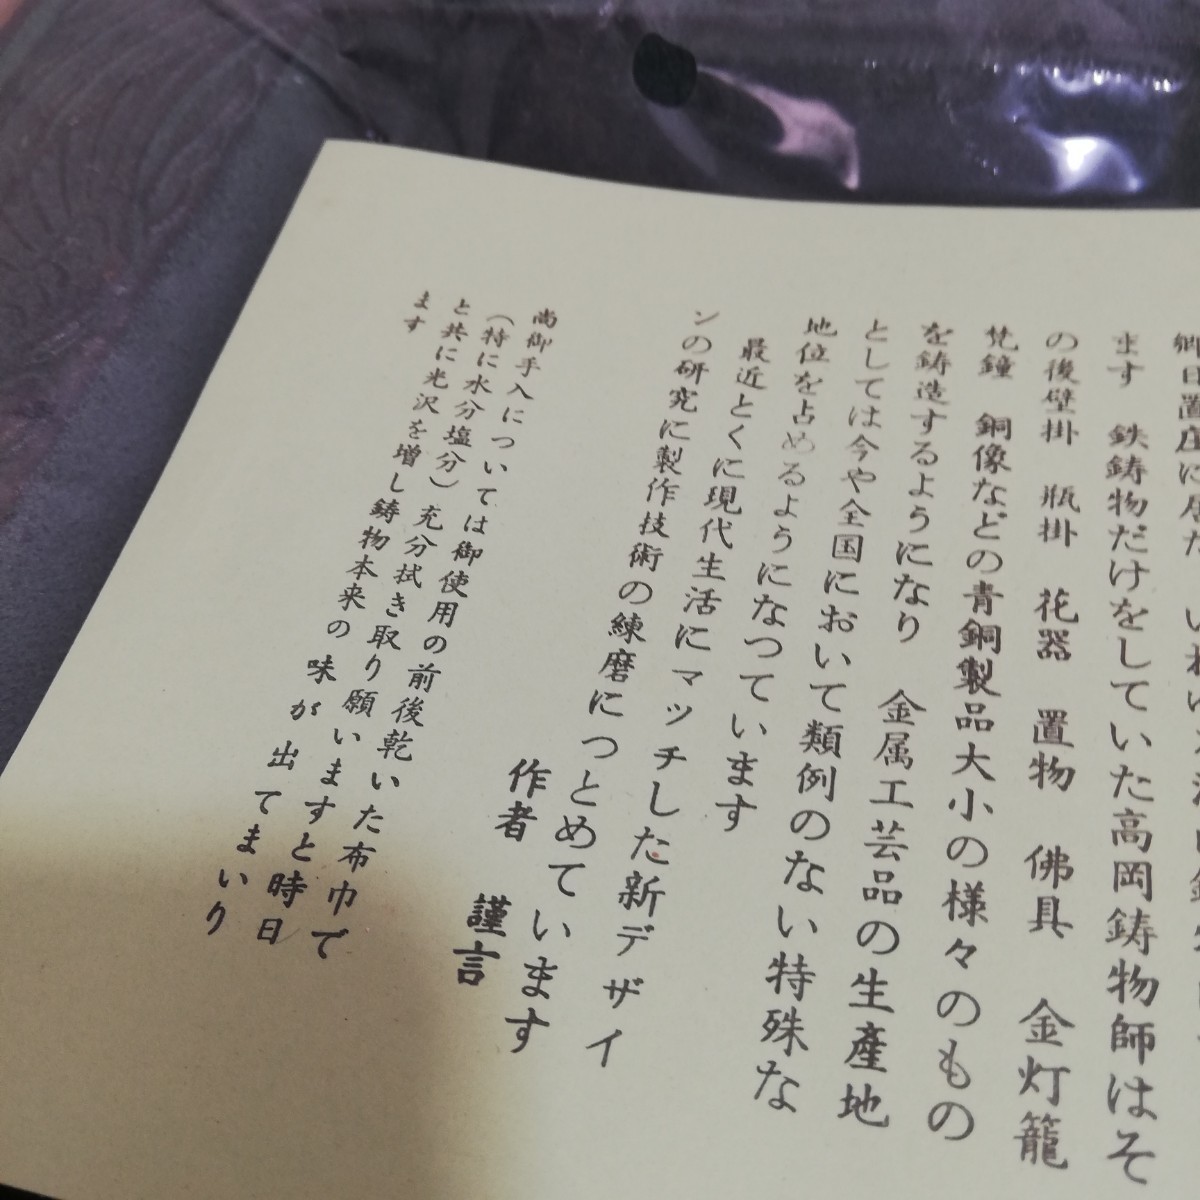 郷日置庄に居た いわゆ
ます 鉄鋳物だけをしていた高岡鋳物師はそ
の後壁掛 瓶掛 花器 置物 佛具 金灯籠
梵鐘 銅像などの青銅製品大小の様々のもの
を鋳造するようになり 金属工芸品の生産地
としては今や全国において類例のない特殊な
地位を占めるようになつています
最近とくに現代生活にマッチした新デザイ
ンの研究に製作技術の練磨につとめています
作者 謹言
尚御手入については御使用の前後乾いた布巾で
(特に水分塩分)充分拭き取り願いますと時日
と共に光沢を増し鋳物本来の味が出てまいり
ます